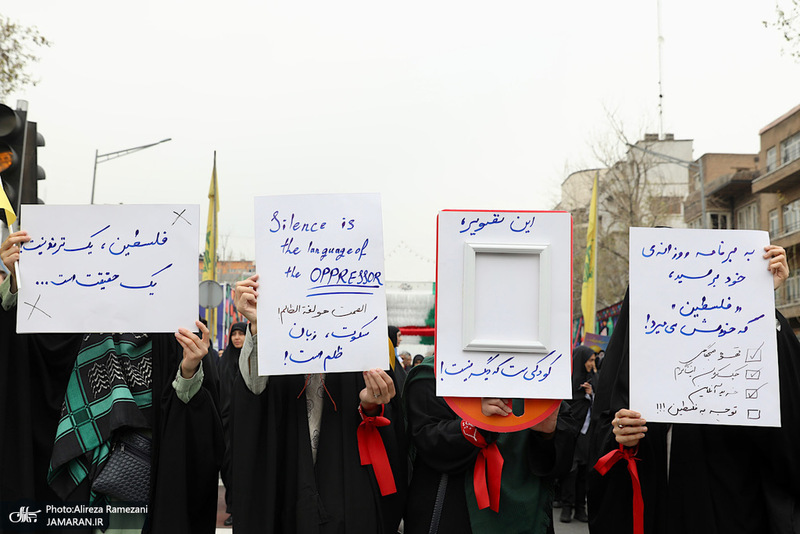 فلسطین، یک ترند نیست
یک حقیقت است...
Silence is
the language of
the OPPRESSOR
الصمت هو لغة الظالم!
سکوت، زبان
ظلم است!
این تصویر،
کودکی ست که دیگر نیست!
به برنامه روزانه ی
خود برسید،
«فلسطین»
که خودش می میرد!
چک کردن اینستاگرام
خرید آنلاین
توجه به فلسطین!!!
Photo:Alireza Ramezani
JAMARAN.IR